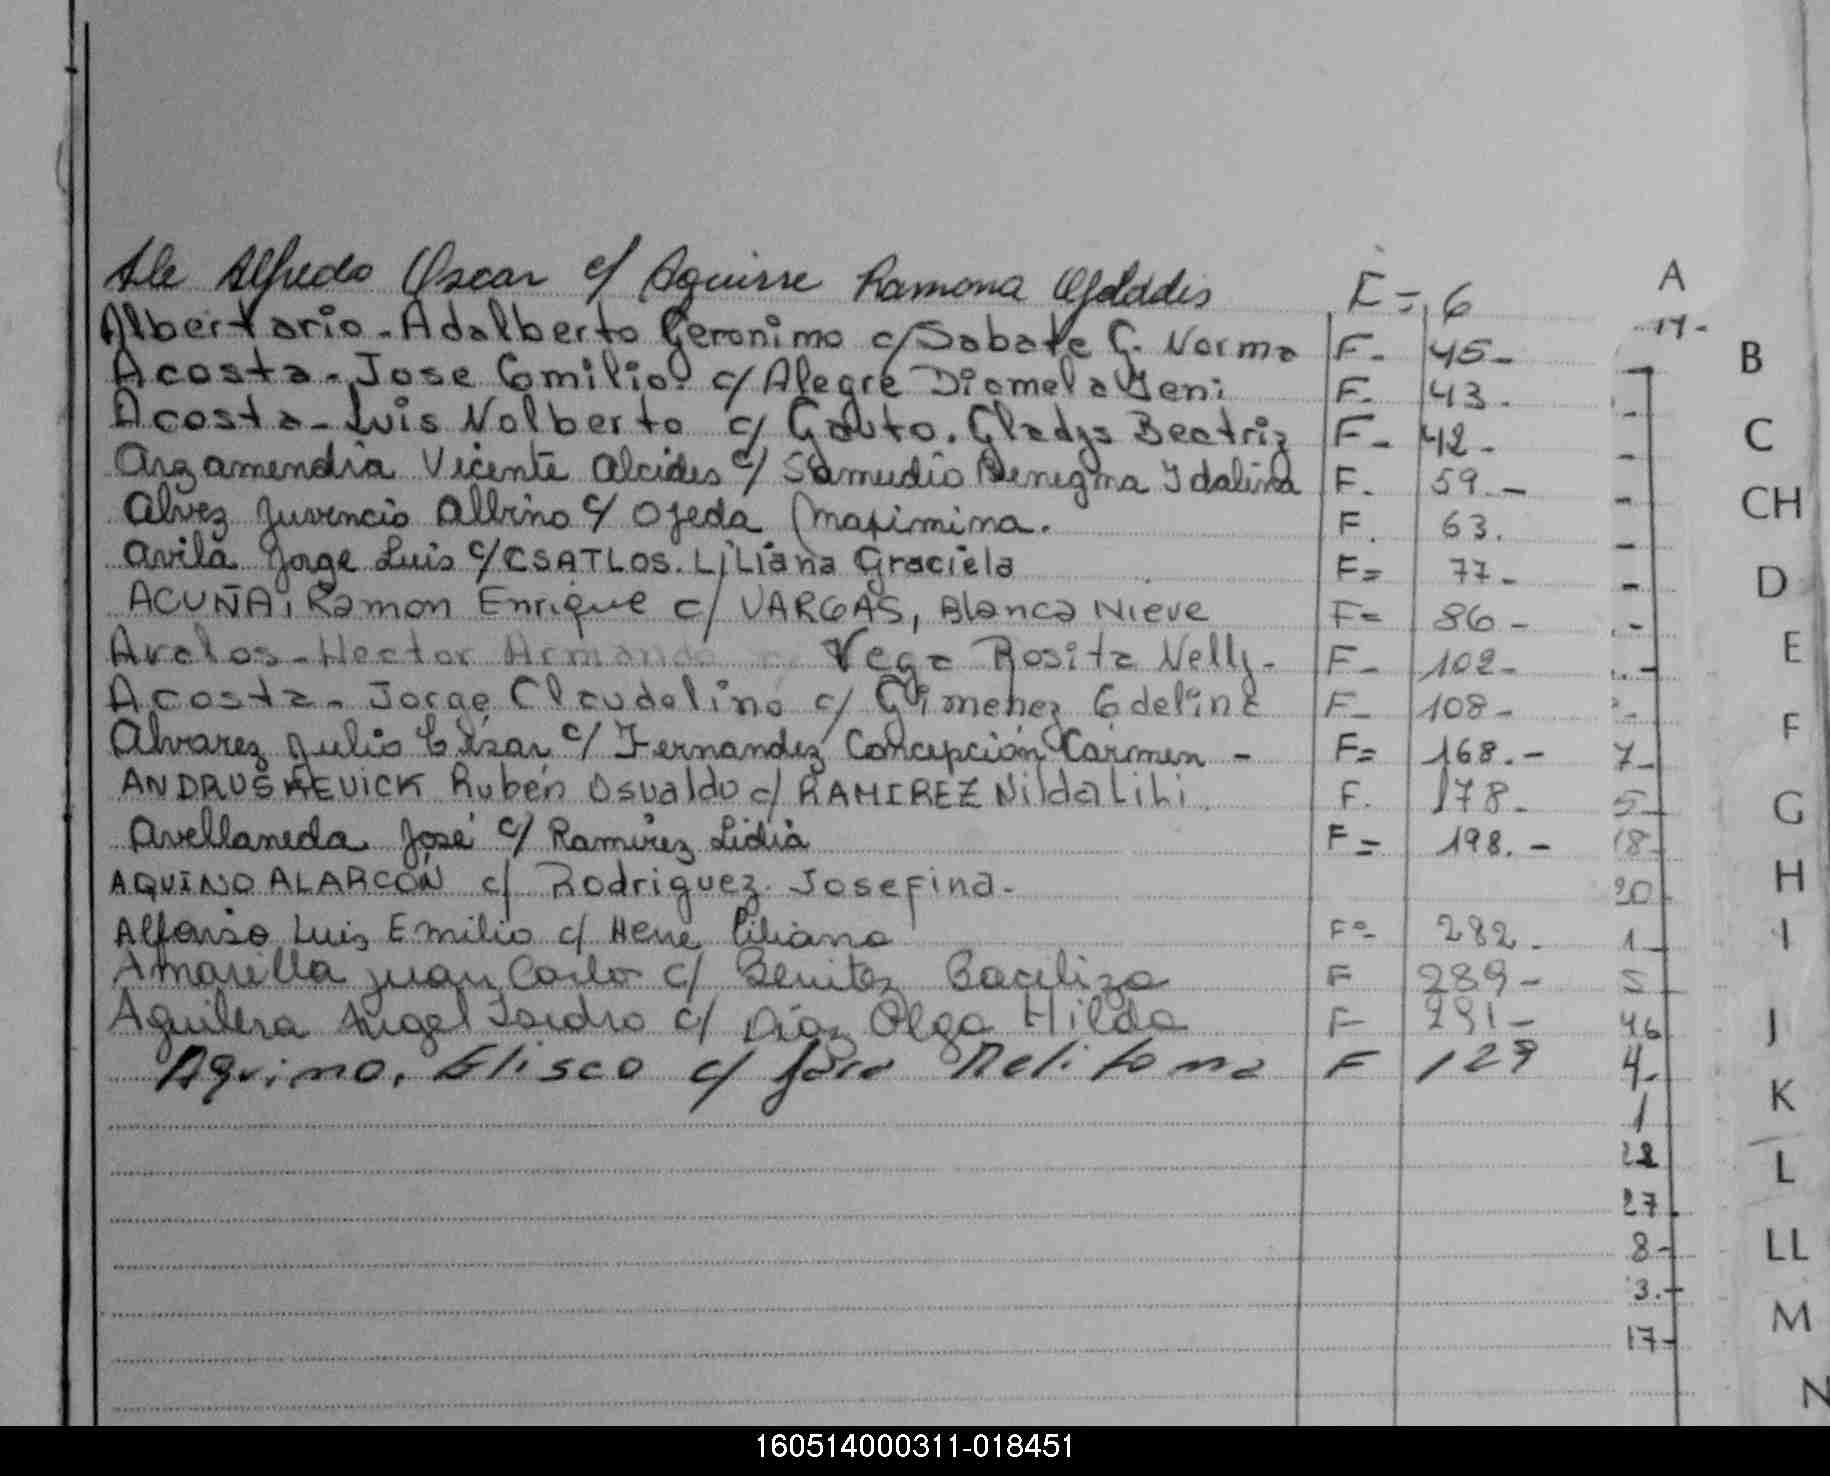 Ale Alfredo Oscar c/ Aguirre Ramona F= 6
A
Albertario - Adalberto Geronimo c/ Sabate G. Norma F- 45-
17-
B
Acosta - Jose Emilio. c/ Alegre Diomela Yeni F. 43.
Acosta - Luis Nolberto c/ Gauto. Gladys Beatriz F- 42-
C
Arzamendia Vicente Alcides c/ Samudio Benegma Idalina F. 59.-
CH
Alvez Juvencio Albino c/ Ojeda Maximina. F. 63.
Avila Jorge Luis c/ CSATLOS. LiLiana Graciela F= 77-
D
ACUÑA, Ramon Enrique c/ VARGAS, Blanca Nieve F= 86-
Avalos - Hector Armando Vega Rosita Nelly- F- 102-
E
Acosta - Jorge Claudelino c/ Gimenez Edelina F- 108-
Alvarez Julio César c/ Fernandez Concepción Carmen - F= 168.- 7-
F
ANDRUSKEVICK Rubén Osvaldo c/ RAMIREZ Nilda LiLi F. 178- 5-
G
Avellaneda José c/ Ramirez Lidia F= 198.- 18-
AQUINO ALARCON c/ Rodriguez. Josefina- 20
H
Alfonso Luis Emilio c/ Liliana Fº- 282- 1-
I
Amarilla Juan Carlos c/ Benitez F 289- 5
Aguilera Angel Isidro c/ Diaz Olga Hilda F- 291- 46
J
Aquino, Eliseo c/ Jara F 129 4.
K
1
22
L
27
8-
LL
3.-
M
17-
N
160514000311-018451